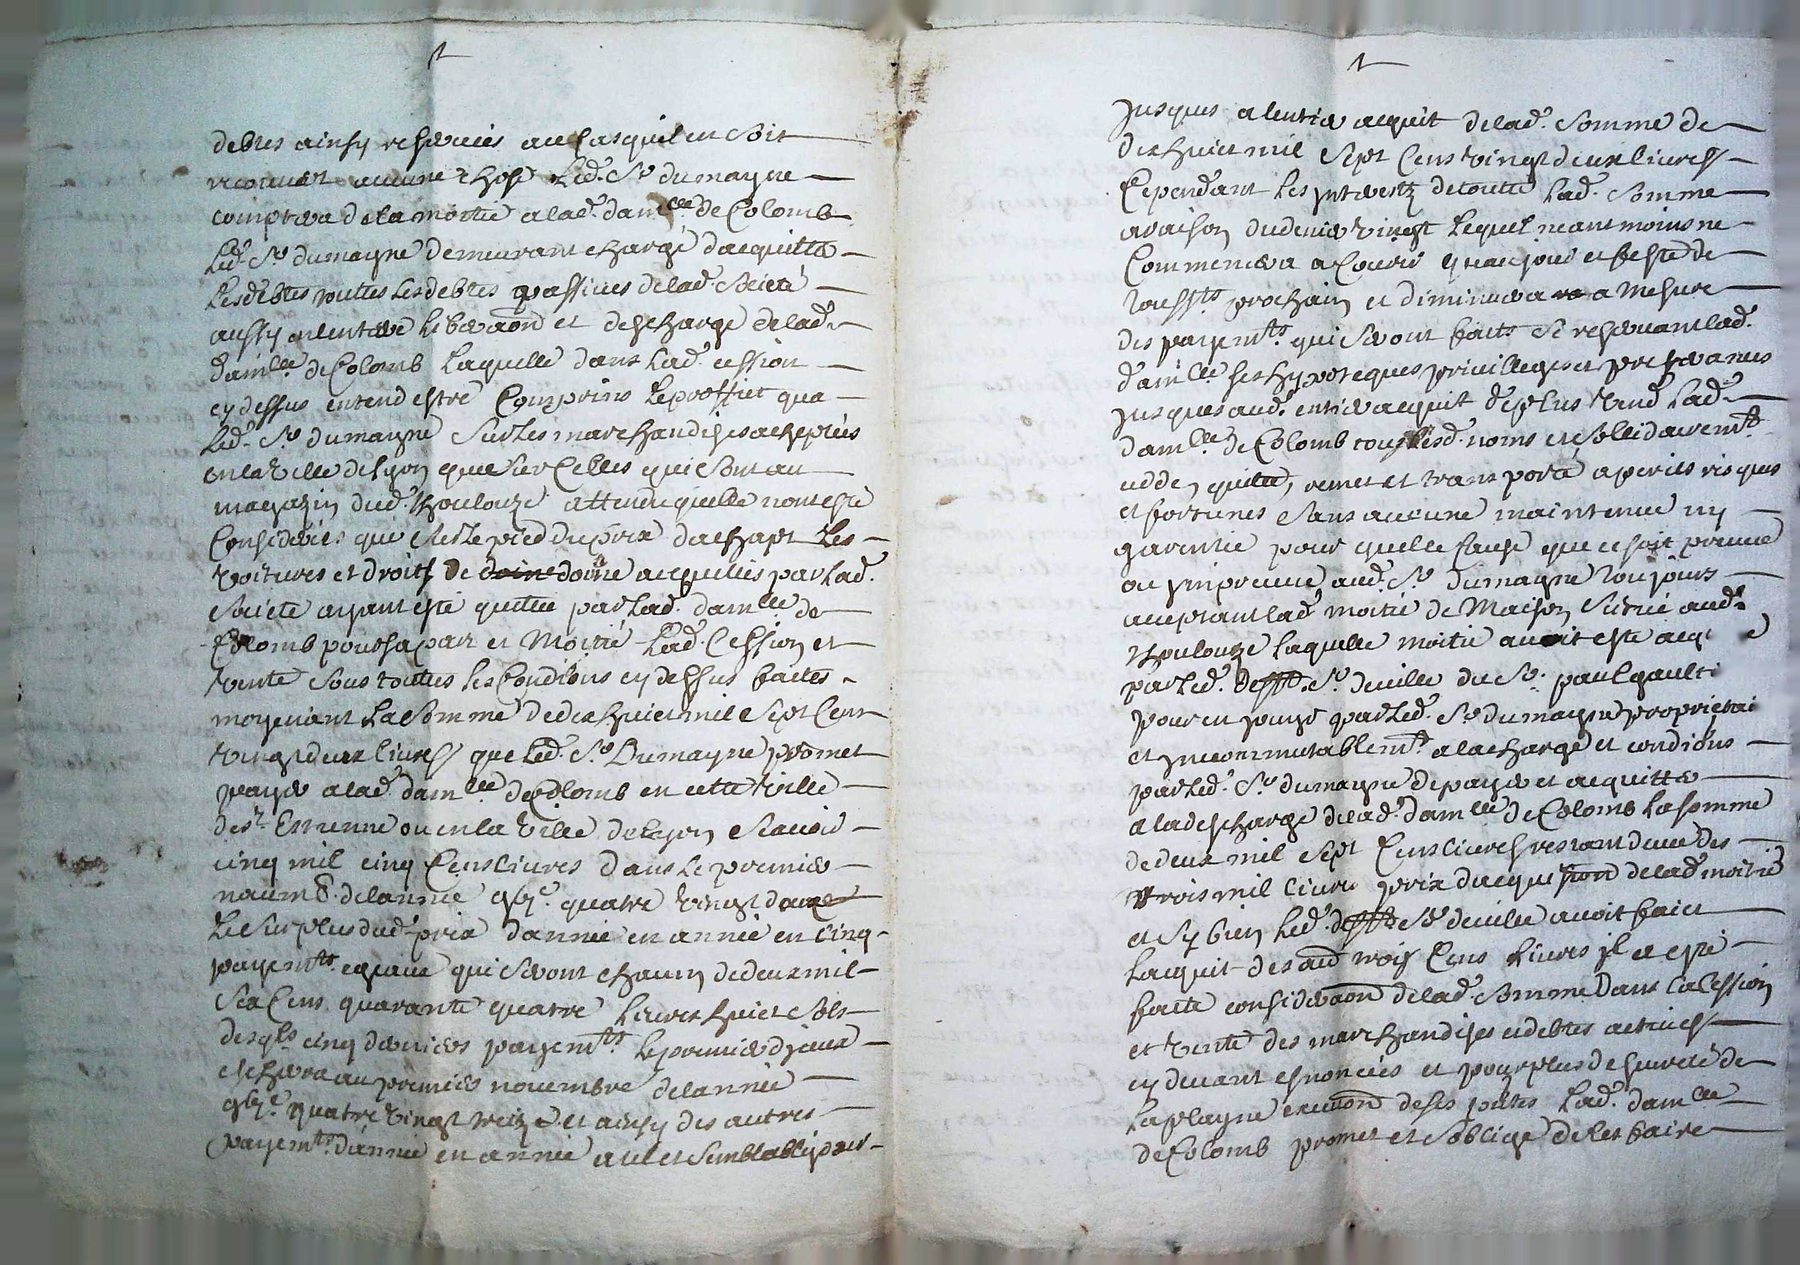 debtes ainsy reservées au cas quil en soit
recouvert aucune chose Led. Sr. dumayne
comptera de la moitié a lad. damlle de Colomb
Led. Sr. dumayne demeurant chargé dacquitter
Lesdebtes toutes les debtes passives delad. Societé
aussy alentiere liberaon et descharge delad.
damlle de Colomb Laquelle dans Lad. cession
cy dessus entend estre Comprins Leproffict qua
Led. Sr. dumayne sur Les marchandises acheptées
en la Ville de lyon que sur Celles qui sont au
magazin dud. thoulouze attendu quelle nont esté
Considerées que sur Le pied du prix dachapt Les
voitures et droits de doine doüne acquittés par Lad.
Societé ayant esté quittée par Lad. damlle de
Colomb pour sa part et Moitié Lad. Cession et
vente sous toutes les Condions cy dessus faites
moyenant La Somme de dix huict mil Sept Cens
vingt deux livres que Led. Sr. Dumayne promet
payer a lad. damlle de Colomb en cette ville
de st. Estienne ou en la ville de Lyon Scavoir
cinq mil cinq Cens livres dans le premier
de lannée quatre vingt douze
Le Surplus dud. prix dannée en année en Cinq
payemts. egaux qui seront chacun de deux mil
Six Cens quarante quatre livres huict Sols
desqls. cinq derniers payemts. le premier diceux
eschera au premier novembre de lannée
quatre vingt treize et ainsy des autres
payemts. dannée en année a tel et Semblable jour
Jusques a lentier acquit delad. Somme de
dix huict mil Sept Cens vingt deux livres
Cependant les jnterertz de toutte Lad. Somme
a raison du denier vingt Lequel neantmoins ne
Commencera a Courir qu au jour et feste de
Toussts. prochain et diminuera a Mesure
des payemts. qui seront faits Se reservant lad.
damlle ses hypoteques privilleges et preferances
Jusques aud. entier acquit de plus vend Lad.
damlle de Colomb tous lesd. noms et sollidairemt.
cedde, quitte, remet et transporté a perils risques
et fortunes Sans aucune maintenue ny
garentie pour quelle Cause que ce soit preveue
ou jmpreveue aud. Sr. Dumayne Toujours
acceptant lad. moitié de Maison Scituée aud.
thoulouze laquelle moitié avoit esté
par Led. defft. Sr. deville du Sr. paul
pour en jouyr par Led. Sr. Dumayne
et jncommutablemt. a la charge et condions
par Led. Sr. dumayne de payer et acquitter
a la descharge delad. damlle de Colomb la somme
de deux mil Sept Cens livres restant deue des
trois mil livres prix dacquesion delad. moitié
et Sy bien Led. defft. Sr. deville avoit faict
Lacquit desd. trois Cens livres jl a esté
faite consideraon delad. somme dans la Cession
et vente des marchandises et debtes actives
cy devant esnoncées et pour plus de seureté de
La playne execuon de ses pntes Lad. damlle
de Colomb promet et s oblige de les faire